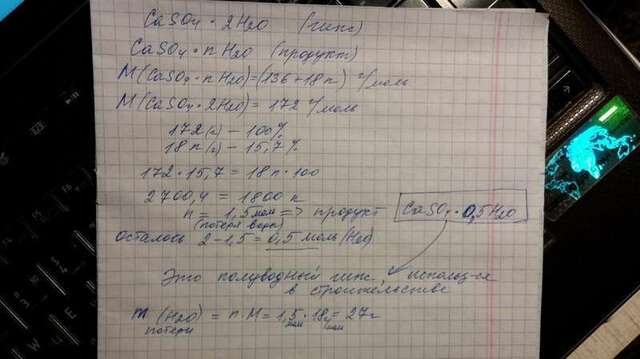 CaSO4 · 2H2O (гипс)
CaSO4 · nH2O (продукт)
M(CaSO4 · nH2O) = (136 + 18n) г/моль
M(CaSO4 · 2H2O) = 172 г/моль
172(г) – 100%
18n(г) – 15,7%
172 · 15,7 = 18n · 100
2700,4 = 1800n
n = 1,5 моль => продукт CaSO4 · 0,5H2O
(потеря воды)
осталось 2 – 1,5 = 0,5 моль (H2O)
Это полуводный гипс, использ-ся
в строительстве
m (H2O) = n · M = 1,5 · 18 = 27 г
потери моль г/моль